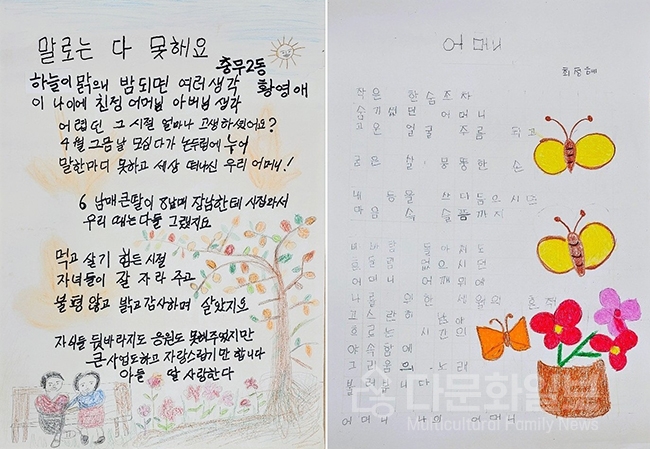 말로는 다 못해요
충무2동
황영애
하늘이 맑으니 밤되면 여러생각
이 나이에 친정 어머님 아버님 생각
어렵던 그 시절 얼마나 고생하셨어요?
4월 그믐날 모심다가 논두렁에 누어
말한마디 못하고 세상 떠나신 우리 어머니!
6 남매 큰딸이 8남매 장남한테 시집와서
우리 때는 다들 그랬지요
먹고 살기 힘든 시절
자녀들이 잘 자라 주고
불평않고 밝고 감사하며 살았지요
자식들 뒷바라지도 응원도 못해주었지만
큰사업도하고 자랑스럽기만 합니다
아들 딸 사랑한다
어머니
작은 한숨조차
숨기셨던 어머니
고운 얼굴 주름 지고
굳은살 뭉툭한 손
내 등을 쓰다듬으시면
마음 속 슬픔까지
어머니 어깨위에
나를 위한 세월의 흔적
고스란히 남아
흐르는 시간의
야속함에
그리움의 노래
불러봅니다
어머니 나의 어머니
다문화일보
Multicultural Family News